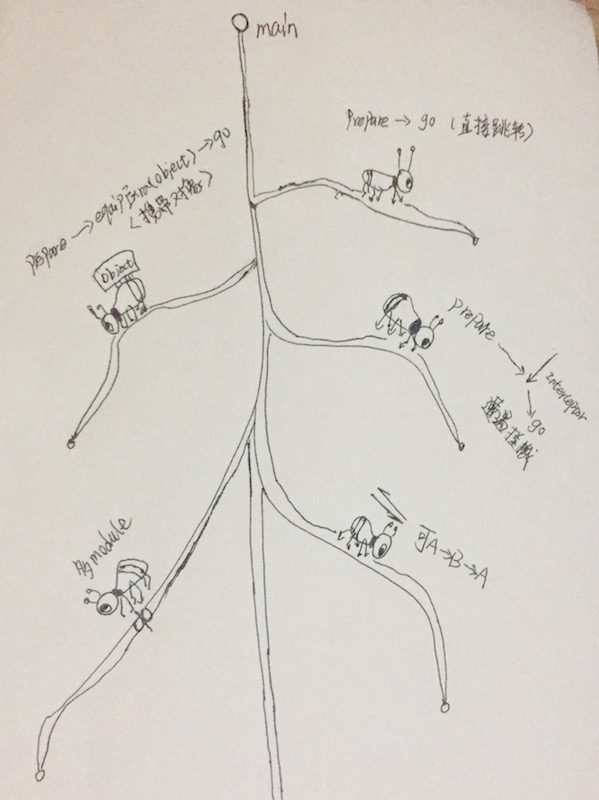 main
Prepare → go (直接跳转)
prepare → equipExtra(object) → go
(携带对象)
Object
prepare →
Interceptor
→ go
拦截
跨module
可A→B→A